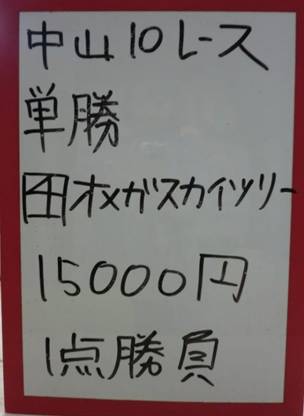 中山10レース
単勝
4オメガスカイツリー
15000円
1点勝負